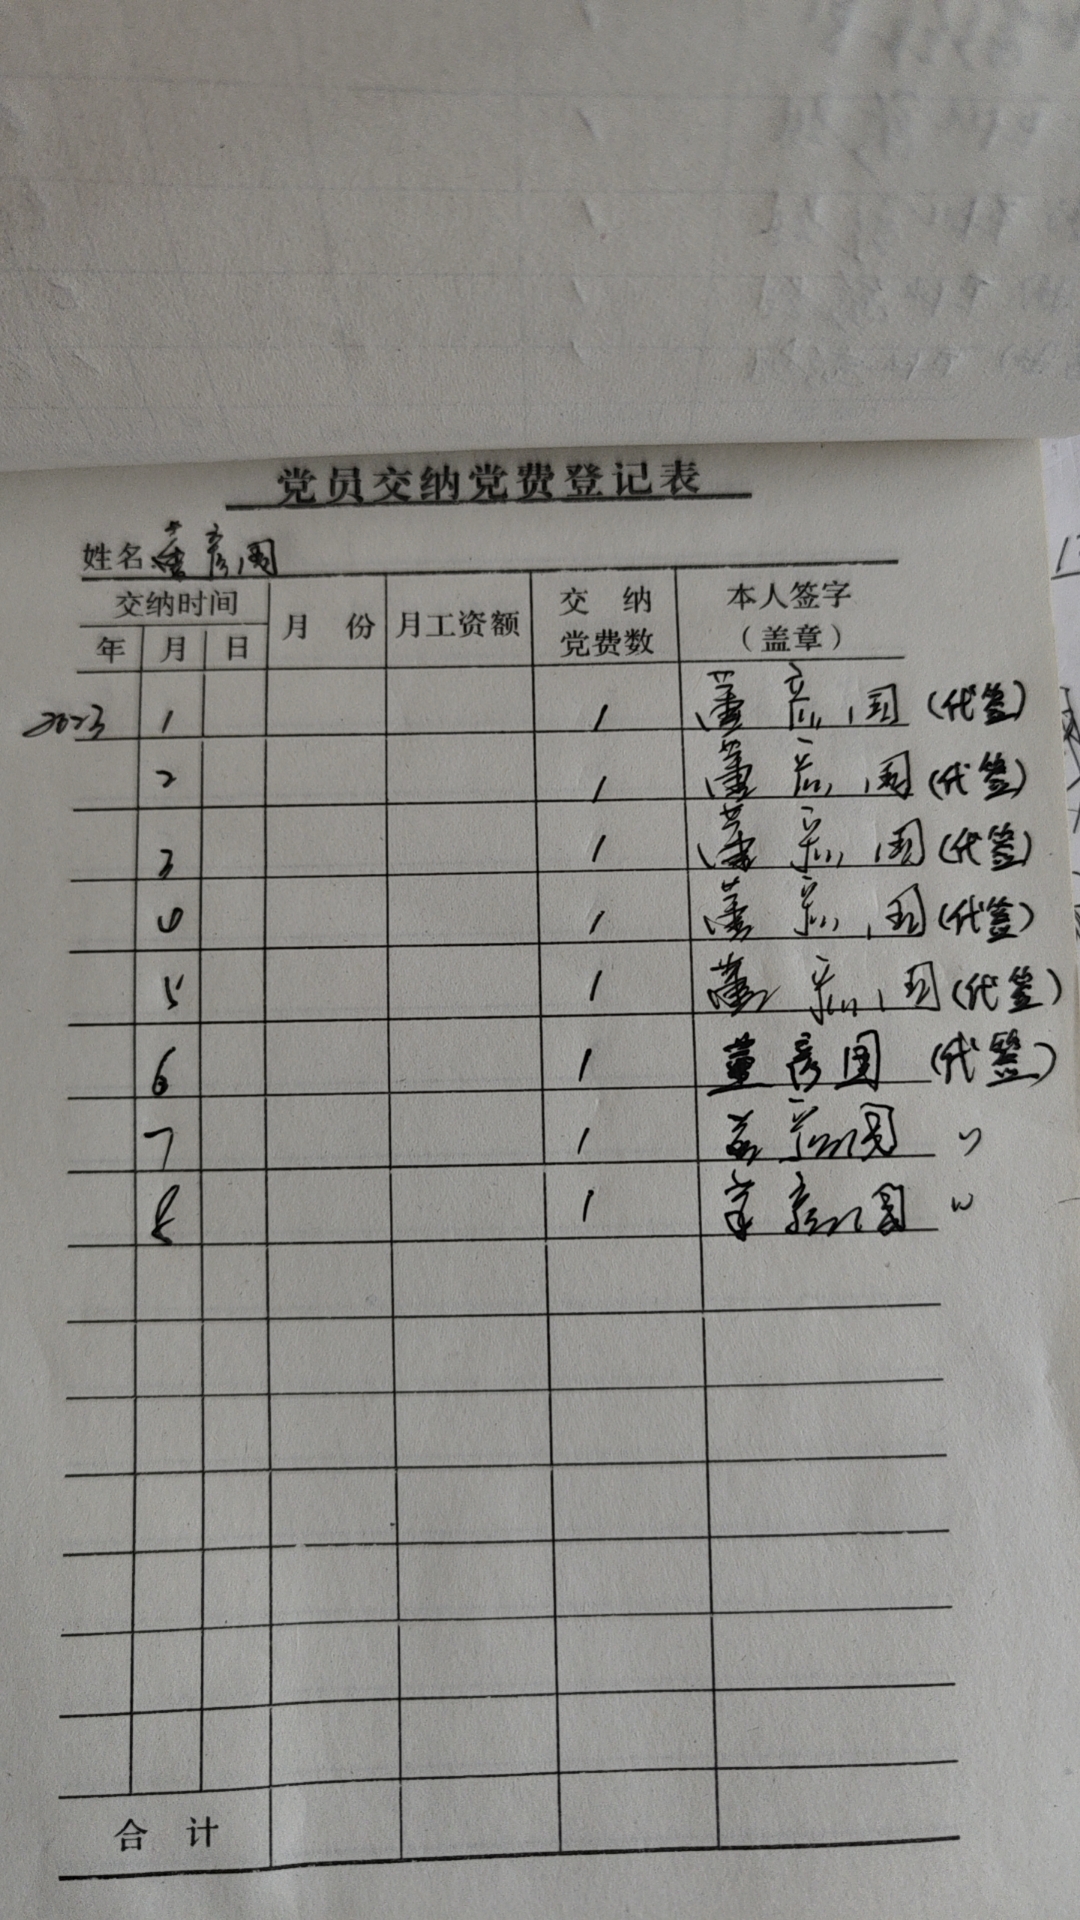 党员交纳党费登记表
姓名 董彦国
交纳时间 月 份 月工资额 交 纳 党费数 本人签字 (盖章)
年 月 日
2023 1 1 董彦国 (代签)
2 1 董彦国 (代签)
3 1 董彦国 (代签)
4 1 董彦国 (代签)
5 1 董彦国 (代签)
6 1 董彦国 (代签)
7 1 董彦国 〃
8 1 董彦国 〃
合 计